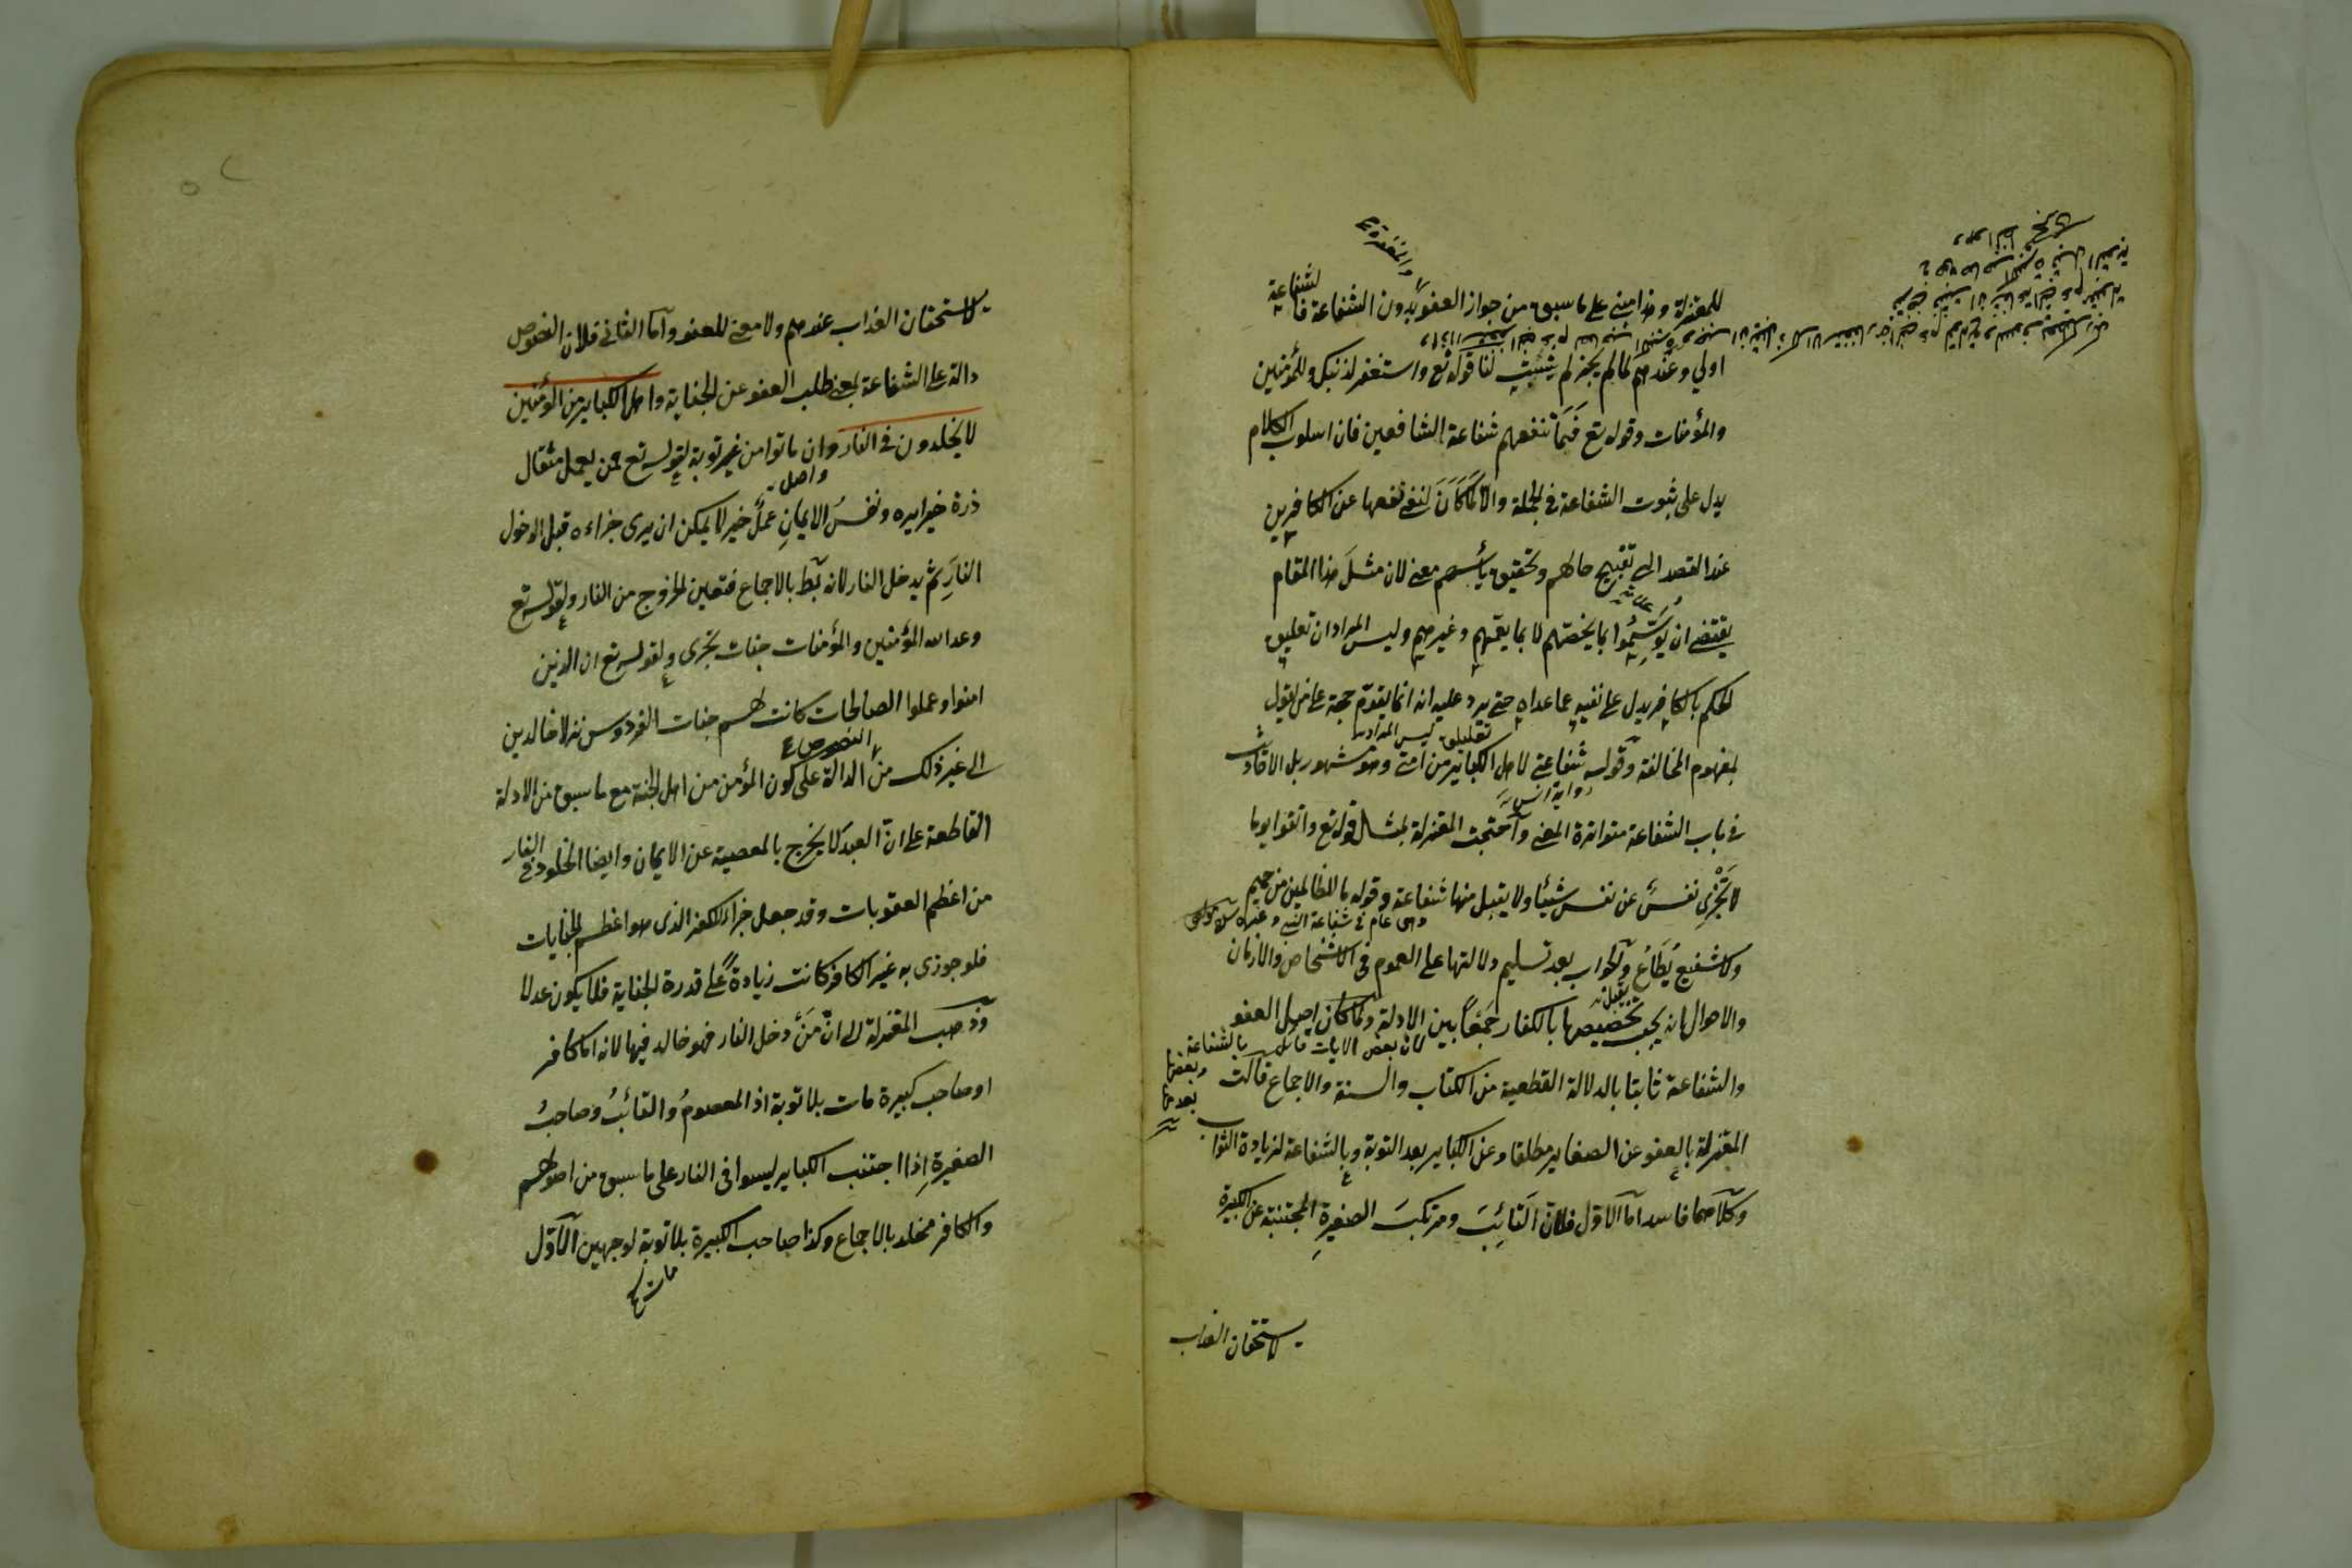 والمغفرة
للمعتزلة وهذا مبني على ما سبق من جواز العفو بدون الشفاعة فالشفاعة
اولي وعندهم لما لم يجز لم يثبت لنا قوله تع واستغفر لذنبك وللمؤمنين
والمؤمنات وقوله تع فما تنفعهم شفاعة الشافعين فان اسلوب الكلام
يدل على ثبوت الشفاعة في الجملة والا لما كان لنفي نفعها عن الكافرين
عند القصد الى تقبيح حالهم وتحقيق يأسهم معنى لان مثل هذا المقام
يقتضي ان يوسموا بما يخصهم لا بما يعمهم وغيرهم وليس المراد ان تعليق
الحكم بالكافر يدل على نفيه عما عداه حتى يرد عليه انه انما يقوم حجة على من يقول
بمفهوم المخالفة وقوله شفاعتي لاهل الكبائر من امتي وهو مشهور بل الاحاديث
في باب الشفاعة متواترة المعنى واحتجت المعتزلة بمثل قوله تع واتقوا يوما
لا تجزي نفس عن نفس شيئا ولا يقبل منها شفاعة وقوله ما للظالمين من حميم
ولا شفيع يطاع والجواب بعد تسليم دلالتها على العموم في الاشخاص والازمان
والاحوال انه يجب تخصيصها بالكفار جمعا بين الادلة ولما كان اصل العفو
والشفاعة ثابتا بالدلالة القطعية من الكتاب والسنة والاجماع قالت
المعتزلة بالعفو عن الصغاير مطلقا وعن الكباير بعد التوبة وبالشفاعة لزيادة الثواب
وكلاهما فاسد اما الاول فلان التائب ومرتكب الصغيرة المجتنبة عن الكبيرة
لا يستحقان العذاب
لا يستحقان العذاب عندهم ولا معنى للعفو واما الثاني فلان النصوص
دالة على الشفاعة بمعنى طلب العفو عن الجناية واهل الكباير من المؤمنين
لا يخلدون في النار وان ماتوا من غير توبة لقوله تع فمن يعمل مثقال
ذرة خيرا يره ونفس الايمان عمل خير لا يمكن ان يرى جزاءه قبل الدخول
النار ثم يدخل النار لانه بط بالاجماع فتعين الخروج من النار ولقوله تع
وعد الله المؤمنين والمؤمنات جنات تجري ولقوله تع ان الذين
امنوا وعملوا الصالحات كانت لهم جنات الفردوس نزلا خالدين
النصوص
الى غير ذلك من الدالة على كون المؤمن من اهل الجنة مع ما سبق من الادلة
القاطعة على ان العبد لا يخرج بالمعصية عن الايمان وايضا الخلود في النار
من اعظم العقوبات وقد جعل جزاء للكفر الذي هو اعظم الجنايات
فلو جوزي به غير الكافر كانت زيادة على قدر الجناية فلا يكون عدلا
وذهب المعتزلة الى ان من دخل النار فهو خالد فيها لانه اما كافر
او صاحب كبيرة مات بلا توبة اذ المعصوم والتائب وصاحب
الصغيرة اذا اجتنب الكباير ليسوا في النار على ما سبق من اصولهم
والكافر مخلد بالاجماع وكذا صاحب الكبيرة بلا توبة لوجهين الاول
مات